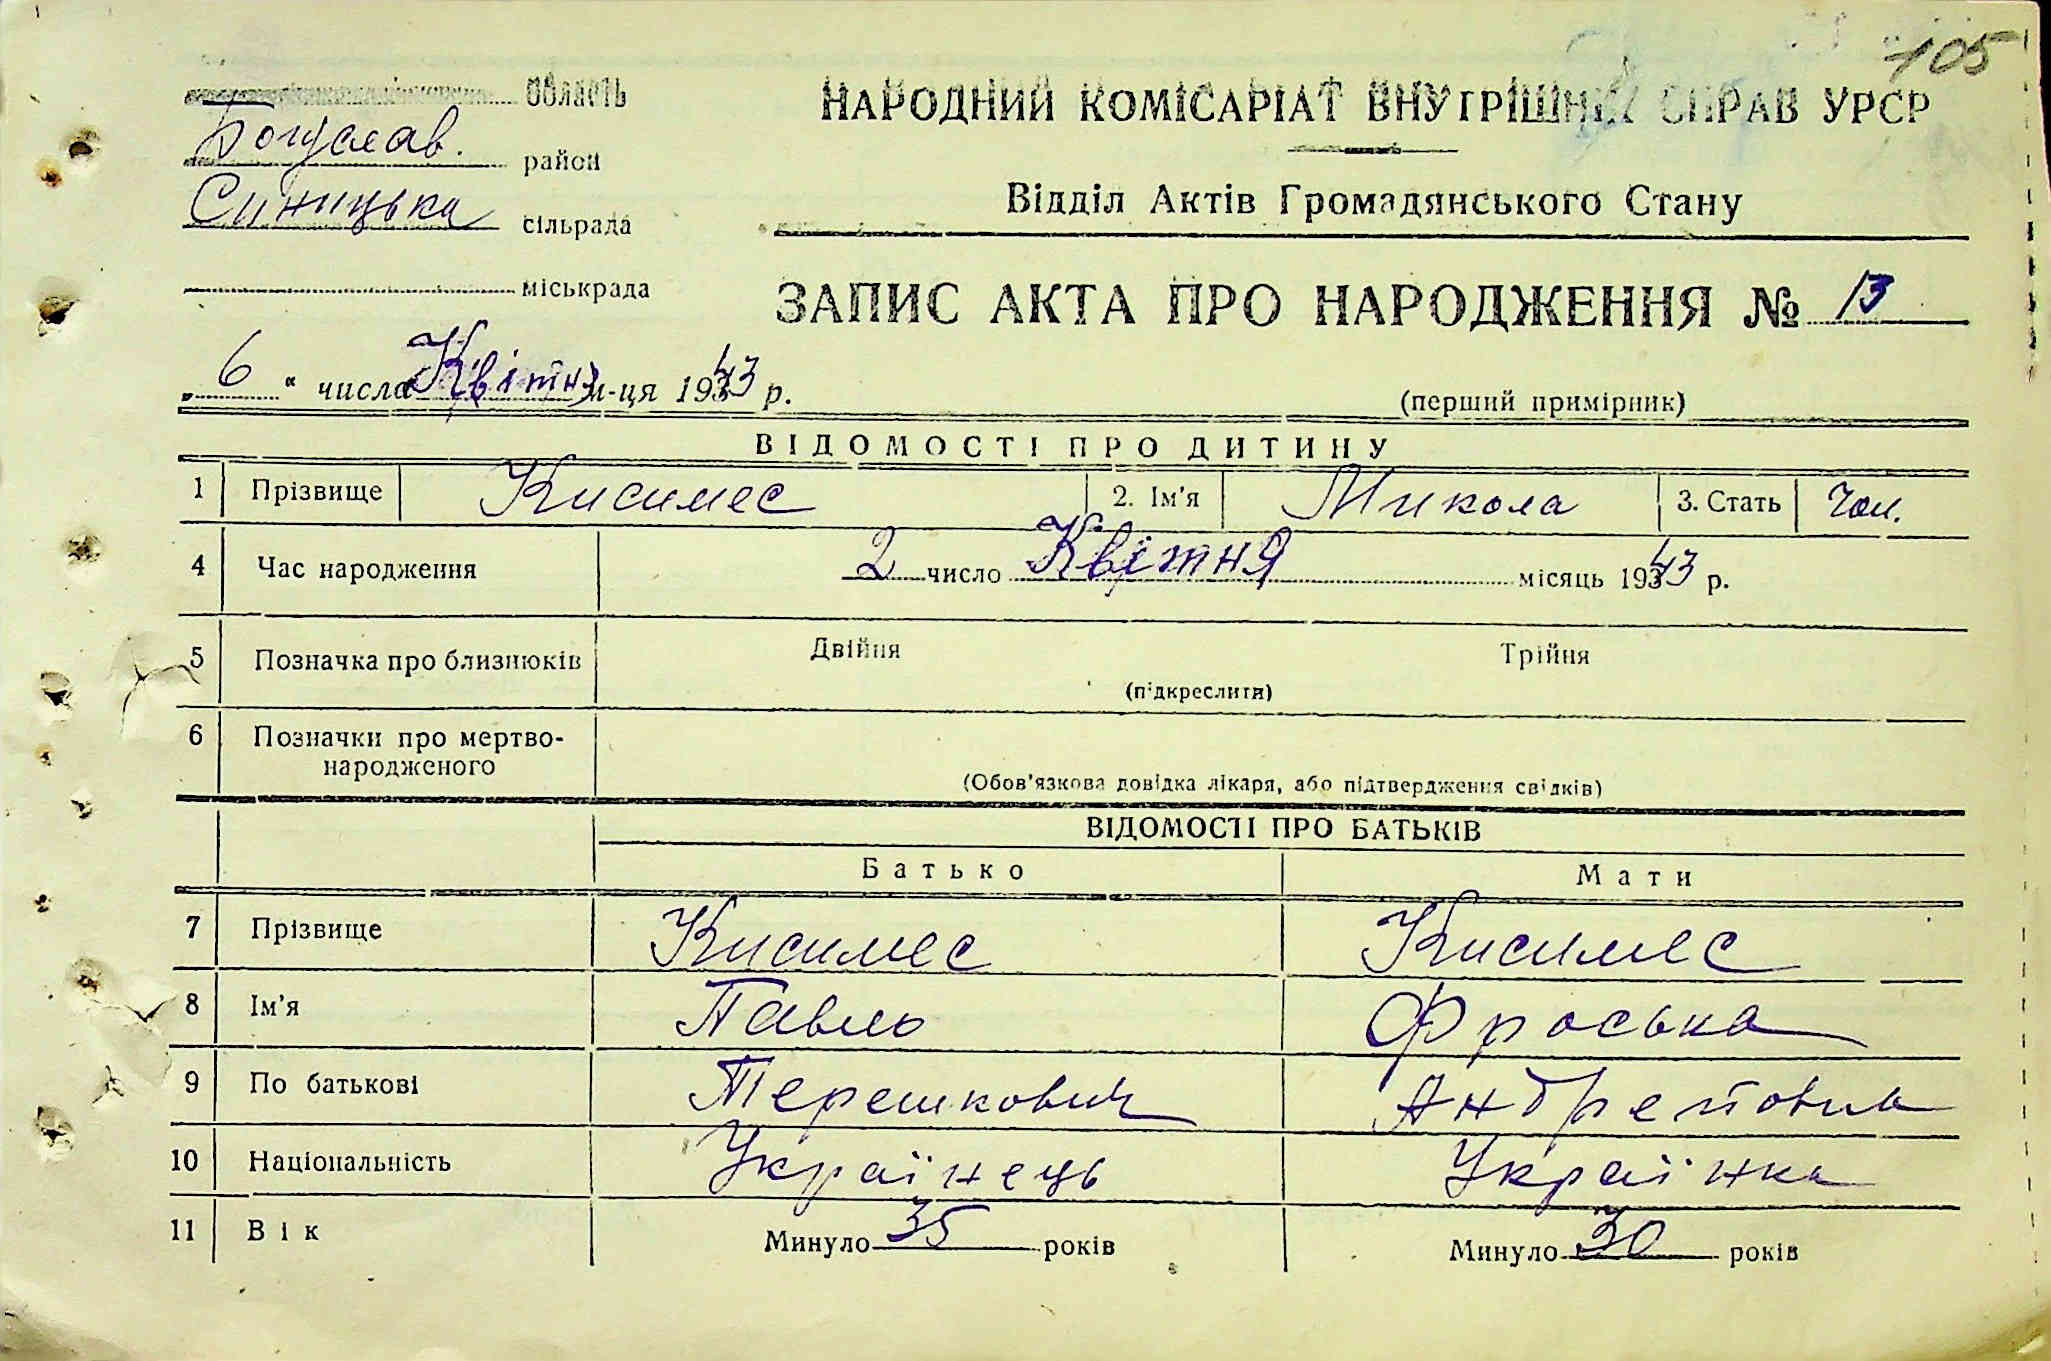 105
область
НАРОДНИЙ КОМІСАРІАТ ВНУТРІШНІХ СПРАВ УРСР
Богуслав. район
Синицька сільрада
Відділ Актів Громадянського Стану
міськрада
ЗАПИС АКТА ПРО НАРОДЖЕННЯ № 13
„ 6 “ числа Квітня м-ця 1943 р.
(перший примірник)
ВІДОМОСТІ ПРО ДИТИНУ
1 Прізвище Кисилес 2. Ім'я Микола 3. Стать Чол.
4 Час народження 2 число Квітня місяць 1943 р.
5 Позначка про близнюків Двійня Трійня
(підкреслити)
6 Позначки про мертво-
народженого
(Обов'язкова довідка лікаря, або підтвердження свідків)
ВІДОМОСТІ ПРО БАТЬКІВ
Батько Мати
7 Прізвище Кисилес Кисилес
8 Ім'я Павло Фроська
9 По батькові Терешкович
10 Національність Українець Українка
11 Вік Минуло 35 років Минуло 30 років